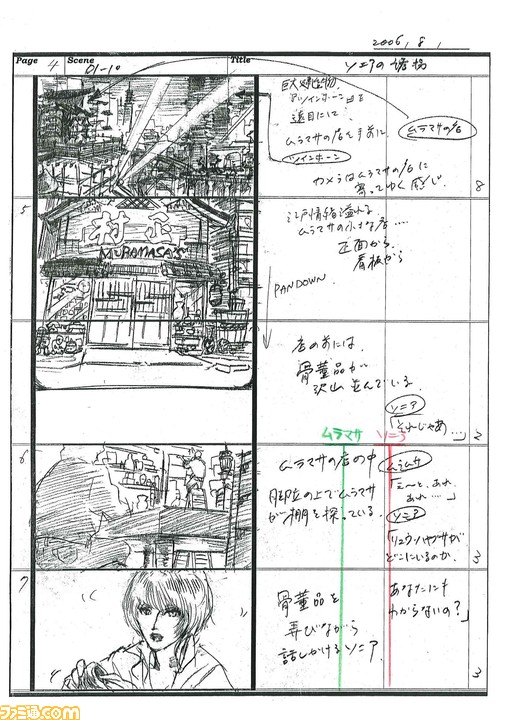 2006, 8,
Page 4 Scene 01-10 Title ソニアの誘拐
巨大建造物
『ツインホーン』を
遠目にして
ムラマサの店を手前に
ツインホーン
カメラはムラマサの店に
寄ってゆく感じ.
ムラマサの店
8
5
江戸情緒溢れる
ムラマサの小さな店....
正面から.
看板から
PAN DOWN
村正
MURAMASA'S
店の前には.
骨董品が
沢山並んでいる.
ソニア
「それじゃあ...」
2
ムラマサ
ソニア
6
ムラマサの店の中
脚立の上でムラマサ
が棚を探っている.
ムラマサ
「え〜と、あれ
あれ....」
ソニア
「リュウ・ハヤブサが
どこにいるのか.
3
7
骨董品を
弄びながら
話しかけるソニア.
あなたにも
わからないの?」
3
ファミ通.com